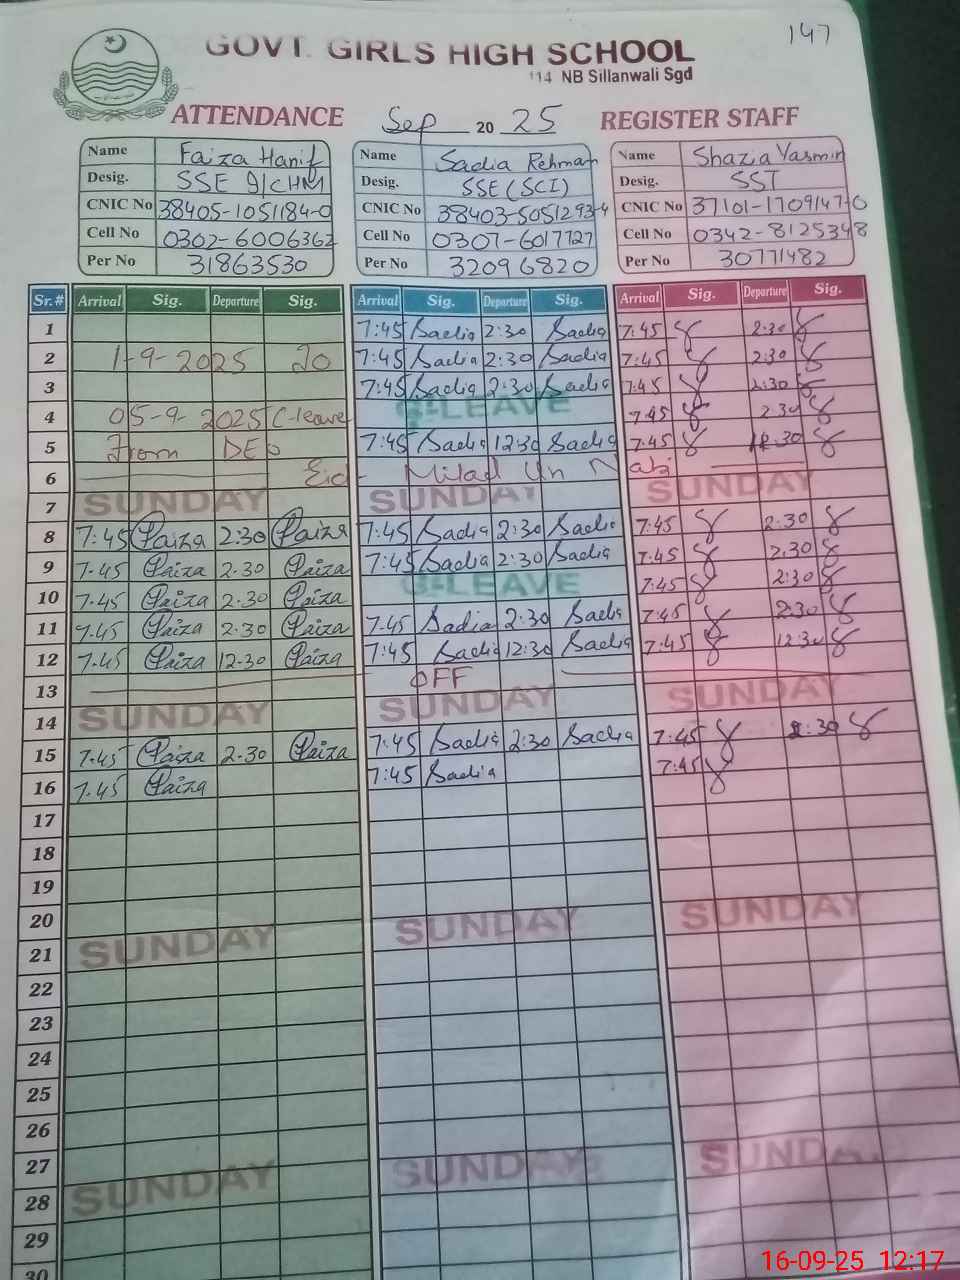 147
GOVT. GIRLS HIGH SCHOOL
114 NB Sillanwali Sgd
ATTENDANCE Sep 20 25 REGISTER STAFF
Name Faiza Hanif Name Sadia Rehman Name Shazia Yasmin
Desig. SSE Desig. SSE (SCI) Desig. SST
CNIC No 38405-1051184-0 CNIC No 38403-5051293-4 CNIC No 37101-1709147-0
Cell No 0302-6006362 Cell No 0307-6017727 Cell No 0342-8125348
Per No 31863530 Per No 32096820 Per No 30771482
Sr.# Arrival Sig. Departure Sig. Arrival Sig. Departure Sig. Arrival Sig. Departure Sig.
1 7:45 Sadia 2:30 Sadia 7:45 2:30
2 1-9-2025 To 7:45 Sadia 2:30 Sadia 7:45 2:30
3 7:45 Sadia 2:30 Sadia 7:45 2:30
4 05-9-2025 C-leave LEAVE 7:45 2:30
5 From DEO 7:45 Sadia 12:30 Sadia 7:45 12:30
6 Eid Milad Un Nabi
7 SUNDAY SUNDAY SUNDAY
8 7:45 Faiza 2:30 Faiza 7:45 Sadia 2:30 Sadia 7:45 2:30
9 7.45 Faiza 2.30 Faiza 7:45 Sadia 2:30 Sadia 7:45 2:30
10 7.45 Faiza 2.30 Faiza LEAVE 7:45 2:30
11 7.45 Faiza 2.30 Faiza 7:45 Sadia 2:30 Sadia 7:45 2:30
12 7.45 Faiza 12.30 Faiza 7:45 Sadia 12:30 Sadia 7:45 12:30
13 OFF
14 SUNDAY SUNDAY SUNDAY
15 7.45 Faiza 2.30 Faiza 7:45 Sadia 2:30 Sadia 7:45 2:30
16 7.45 Faiza 7:45 Sadia 7:45
17
18
19
20
21 SUNDAY SUNDAY SUNDAY
22
23
24
25
26
27
28 SUNDAY SUNDAY SUNDAY
29
30
16-09-25 12:17